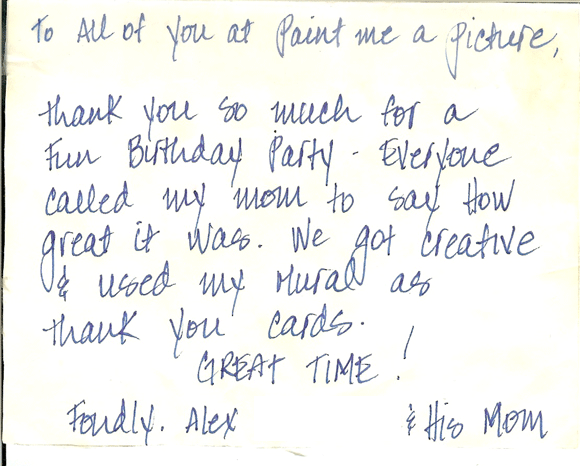 To All of you at Paint me a picture,
Thank you so much for a
Fun Birthday Party - Everyone
called my mom to say How
great it was. We got creative
& used my Mural as
thank you cards.
GREAT TIME!
Fondly. Alex & His Mom